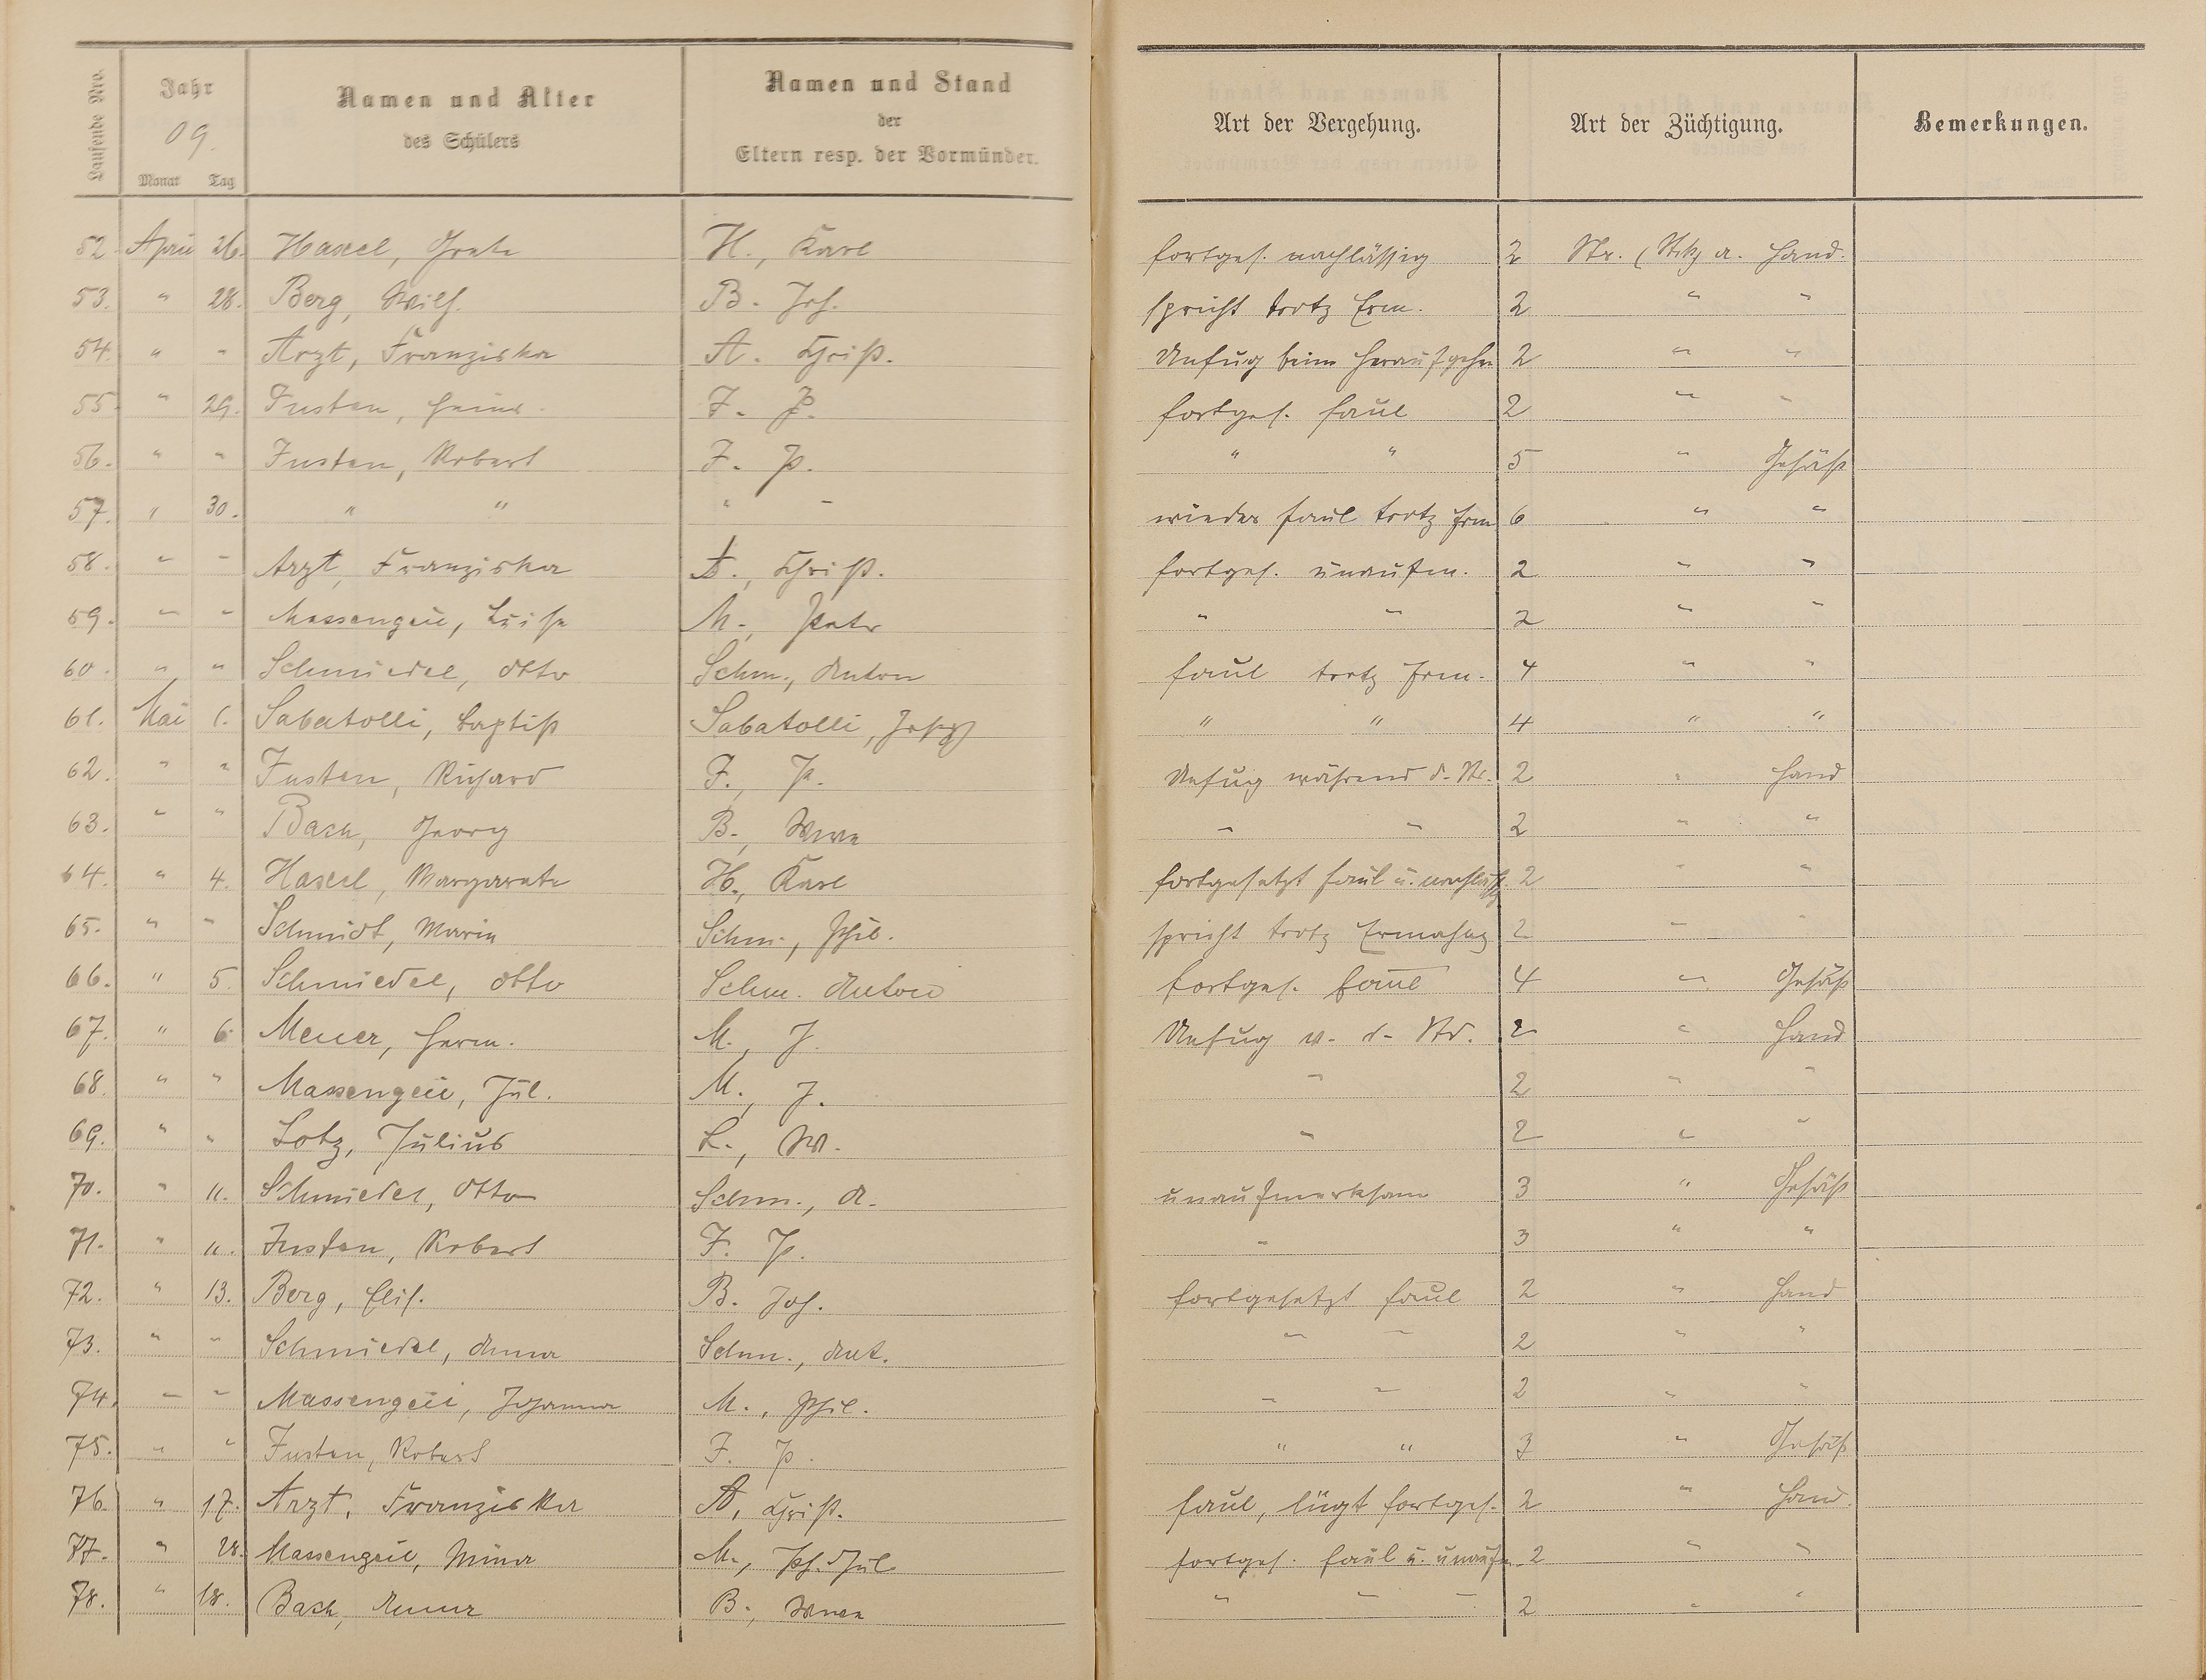 Laufende Nro.
Jahr
09.
Monat Tag
Namen und Alter
des Schülers
Namen und Stand
der
Eltern resp. der Vormünder.
Art der Vergehung.
Art der Züchtigung.
Bemerkungen.
52. April 26. Hassel, Grete H., Karl fortges. nachlässig 2 Str. (Stck) a. Hand.
53. " 28. Berg, Wilh. B. Joh. spricht trotz Erm. 2 " "
54. " " Arzt, Franziska A. Christ. Unfug beim Heraufgehn 2 " "
55. " 29. Fusten, Heinr. F. P. fortges. faul 2 " "
56. " " Fusten, Robert F. P. " " 5 " Gesäß
57. " 30. " " " " wieder faul trotz Erm 6 " "
58. " " Arzt, Franziska A., Christ. fortges. unaufm. 2 " "
59. " " Massengeil, Luise M., Peter " " 2 " "
60. " " Schmiedel, Otto Schm., Anton faul trotz Erm. 4 " "
61. Mai 1. Sabatolli, Baptist Sabatolli, Joseph " " 4 " "
62. " " Fusten, Richard F., P. Unfug während d. Str. 2 " Hand
63. " " Bach, Georg B., Wwe " " 2 " "
64. " 4. Hassel, Margarete H., Karl fortgesetzt faul u. nachlässig 2 " "
65. " " Schmidt, Marie Schm., Phil. spricht trotz Ermahng 2 " "
66. " 5. Schmiedel, Otto Schm. Anton fortges. faul 4 " Gesäß
67. " 6. Meuer, Herm. M., J. Unfug w. d. Str. 2 " Hand
68. " " Massengeil, Jul. M., J. " 2 " "
69. " " Lotz, Julius L., W. " 2 " "
70. " 11. Schmiedel, Otto Schm., A. unaufmerksam 3 " Gesäß
71. " 11. Fusten, Robert F. P. " 3 " "
72. " 13. Berg, Elis. B. Joh. fortgesetzt faul 2 " Hand
73. " " Schmiedel, Anna Schm., Ant. " " 2 " "
74. " " Massengeil, Johanna M., Phil. " " 2 " "
75. " " Fusten, Robert F. P. " " 3 " Gesäß
76. " 17. Arzt, Franziska A, Christ. faul, lügt fortges. 2 " Hand.
77. " 28. Massengeil, Mina M., Ph. Jul fortges. faul u. unaufm. 2 " "
78. " 18. Bach, Anna B., Wwe " " " 2 " "